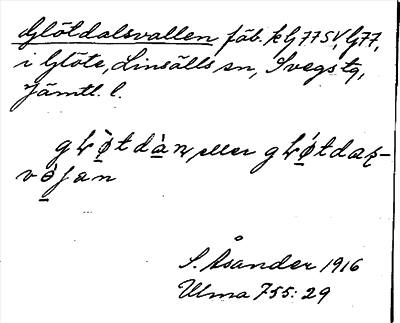 Glötdalsvallen fäb. k G 77 SV, G 77,
i Glöte, Linsälls sn, Svegs tg,
Jämtl. l.
eller
S. Åsander 1916
Ulma 755: 29